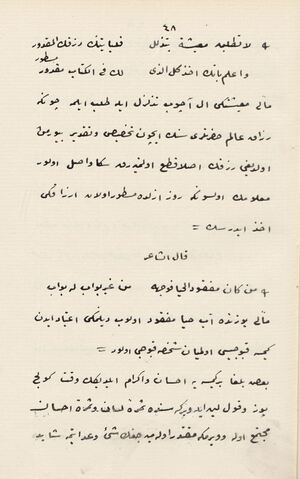 ٤٨
لا تطلبن معيشة بتذلل فليأتينك رزقك المقدور
واعلم بانك اخذ كل الذى لك فى الكتاب مقدور
مسطور
مآلى معيشتكى ال آچوب تذلل ايله طلب ايلمه چونكه
رزاق عالم حضرتلرى سنك ايچون تخصيص وتقدير بيورمش
اولديغى رزقك اصلا قطع اولنميه رق سكا واصل اولور
معلومك اولسونكه روز ازلده مسطور اولان ارزاقكى
اخذ ايدرسك =
قال الشاعر
من كان مفقود الحيا فوجهه من غير بواب له بواب
مآلى يوزنده آب حيا مفقود اولوب ديلنمكى اعتياد ايدن
كمسه قپوجيسى اولميان شخصه قپوجى اولور =
بعض بلغا بر كمسه يه احسان واكرام ايلديكك وقت كولج
يوز وقول لين ايله وير كه سنده ثمرهٔ لسان وثمرهٔ احسان
مجتمع اوله وويرمكه مقتدر اوله ميه جغك شئ وعد ايتمه شايد